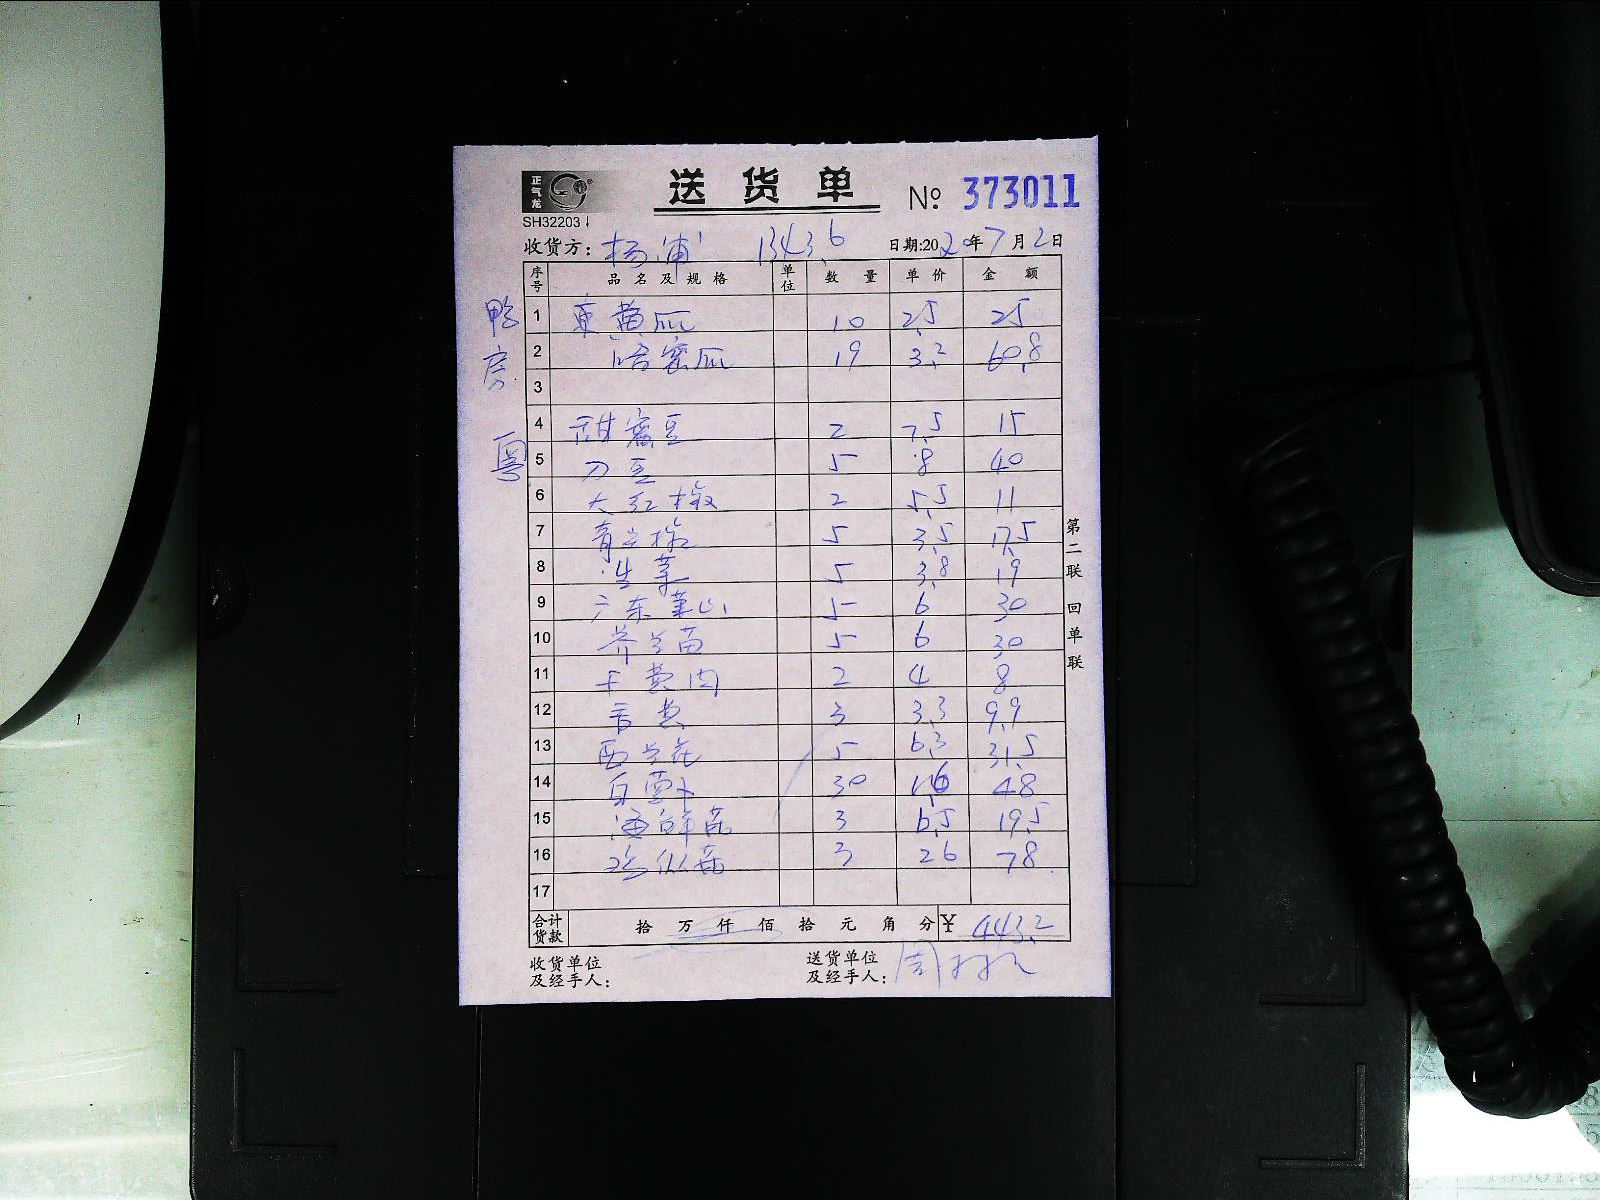 正气龙
SH32203
送货单
№ 373011
收货方: 杨浦 1343.6 日期:2020年7月2日
序号 品名及规格 单位 数量 单价 金额
鸭房
粤
1 黄瓜 10 2.5 25
2 哈密瓜 19 3.2 60.8
3
4 甜蜜豆 2 7.5 15
5 刀豆 5 8 40
6 大红椒 2 5.5 11
7 青 椒 5 3.5 17.5
8 生菜 5 3.8 19
9 广东菜心 5 6 30
10 芥兰苗 5 6 30
11 2 4 8
12 3 3.3 9.9
13 西兰花 5 6.3 31.5
14 白萝卜 30 1.6 48
15 海鲜菇 3 6.5 19.5
16 菇 3 26 78
17
合计货款 拾万仟佰拾元角分 ¥ 443.2
收货单位及经手人:
送货单位及经手人: 周
第二联 回单联